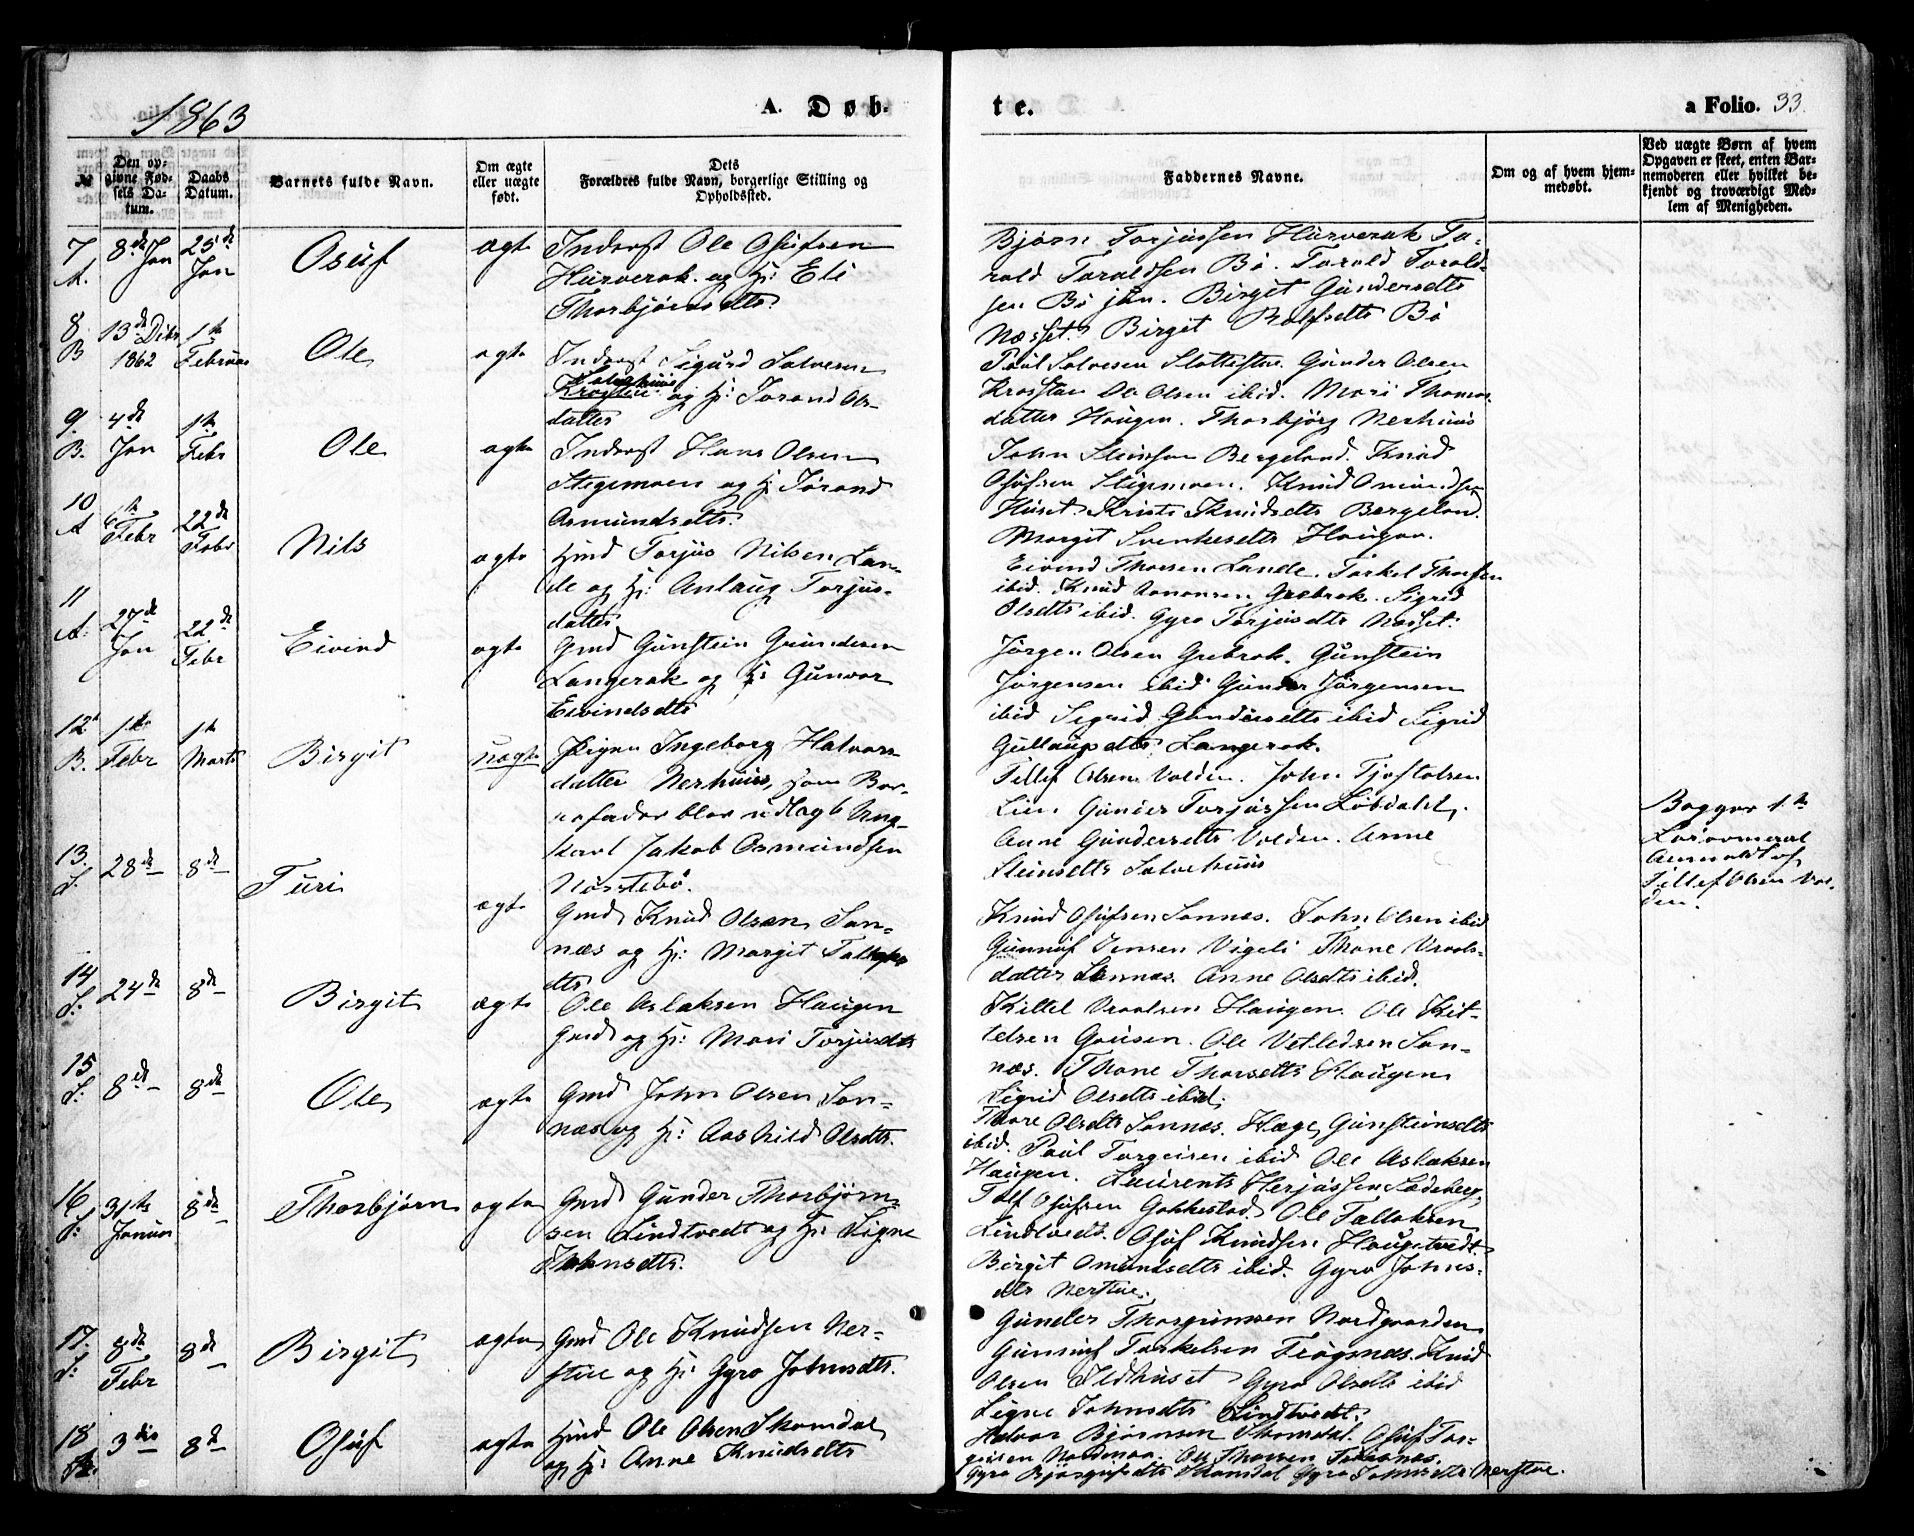 1863
A. Døb-
te.
a Folio. 33.
№
Den op-
givne Fød-
sels Da-
tum.
Daabs
Datum.
Barnets fulde Navn.
Om ægte
eller uægte
født.
Dets
Forældres fulde Navn, borgerlige Stilling og
Opholdssted.
Faddernes Navne.
Om og af hvem hjem-
medøbt.
Ved uægte Børn af hvem
Opgaven er skeet, enten Bar-
nemoderen eller hvilket be-
kjendt og troværdigt Med-
lem af Menigheden.
7
A.
8de Jan
25de
Jan
Osuf
ægte
Inderst Ole Osufsen
Hurverak og H: Eli
Thorbjörnsdtr.
Bjørn Torjussen Hurverak Ta-
rald Taraldsen Bö. Tarald Tarald-
sen Bö jun. Birgit Gundersdtr
Næsset. Birgit Rolfsdtr Bö
8
B
13de Dcbr
1862
1ste
Februar
Ole
ægte
Inderst Sigurd Salvesen
og H: Torand Ols-
datter
Paul Salvesen Slottestøe Gunder Olsen
Ole Olsen ibid. Mari Thomas
datter Haugen. Thorbjörg Nerhuus
9.
B.
4de
Jan
1ste
Febr
Ole
ægte
Inderst Hans Olsen
Stegemoen og H: Törand
Asmundsdtr.
John Bergeland. Knud
Osufsen Stigemoen. Knud Omundsen
Huset. Knudsdtr Bergeland.
Margit Svenkesdtr Haugen.
10
A
Febr
22de
Febr
Nils
ægte
Torjus Nilsen Lan-
de og H: Anlaug Torjus-
datter
Eivind Thorsen Lande. Torkel Thorsen
ibid. Knud Aanonsen Grebrok. Sigrid
Olsdtr ibid. Gyro Torjusdtr Næsset.
11
A.
27de
Jan
22de
Febr
Eivind
ægte
Gmd Gunstein Gundersen
Langerak og H: Gunvor
Eivindsdtr
Jørgen Olsen Grebrok. Gunstein
Jørgensen ibid Gunder Jørgensen
ibid Sigrid Gundersdtr ibid Sigrid
Gullaugsdtr Langerak.
12
B.
1ste
Febr
1ste
Marts
Birgit
uægte
Pigen Ingeborg Halvors-
datter Nerhuus, som Bar-
nefader blev udlagt Ung-
karl Jakob Osmundsen
Nørstebø.
Tellef Olsen Valden. John Tjostolsen
Lien Gunder Torjussen
Anne Gundersdtr Volden. Anne
Steinsdtr Salvehuus
Tellef Olsen Vol-
den.
13.
S.
28de
8de
Turi
ægte
Gmd Knud Olsen Son-
næs og H: Margit
dtr
Knud Osufsen Sonnæs. John Olsen ibid
Gunnuf Jensen Vigeli Thone Vraals-
datter Sonnæs. Anne Olsdtr ibid.
14
S:
24de
8de
Birgit
ægte
Ole Aslaksen Haugen
Gmd og H: Mari Torjusdtr
Kittel Vraalsen Haugen. Ole Kit-
telsen Gousen. Ole Vetlesen Son-
næs. Thone Thorsdtr Haugen
Sigrid Olsdtr ibid.
15
S:
8de
8de
Ole
ægte
Gmd John Olsen Son-
næs og H: Aashild Olsdtr.
Thore Olsdtr Sonnæs. Hæge Gunsteinsdtr
ibid. Paul Torgeirsen ibid Ole Aslaksen
Haugen. Laurents Herjussen
16
S:
31te
Januar
8de
Thorbjørn
ægte
Gmd Gunder Thorbjørn-
sen Lindtvedt og H: Signe
Johnsdtr.
Osufsen Gakkestad. Ole Tallaksen
Lindtvedt. Osuf Knudsen Haugetvedt
Birgit Omundsdtr ibid. Gyro Johns-
dtr Nerstue.
17.
S:
8de
Febr
8de
Birgit
ægte
Gmd Ole Knudsen Ner-
stue og H: Gyro Johnsdtr.
Gunder Thorgrimsen Nordgaarden
Gunnuf Torkelsen Frøysnæs. Knud
Olsen Ildhuset Gyro Olsdtr ibid
Signe Johnsdtr Lindtvedt.
18
3die
8de
Osuf
ægte
Ole Olsen Skomdal
og H: Anne Knudsdtr
Halvor Bjørnsen Skomdal. Osuf Tor-
geirsen Nordmoa. Ole Thorsen
Gyro Skomdal Gyro Johnsdtr Nerstue.